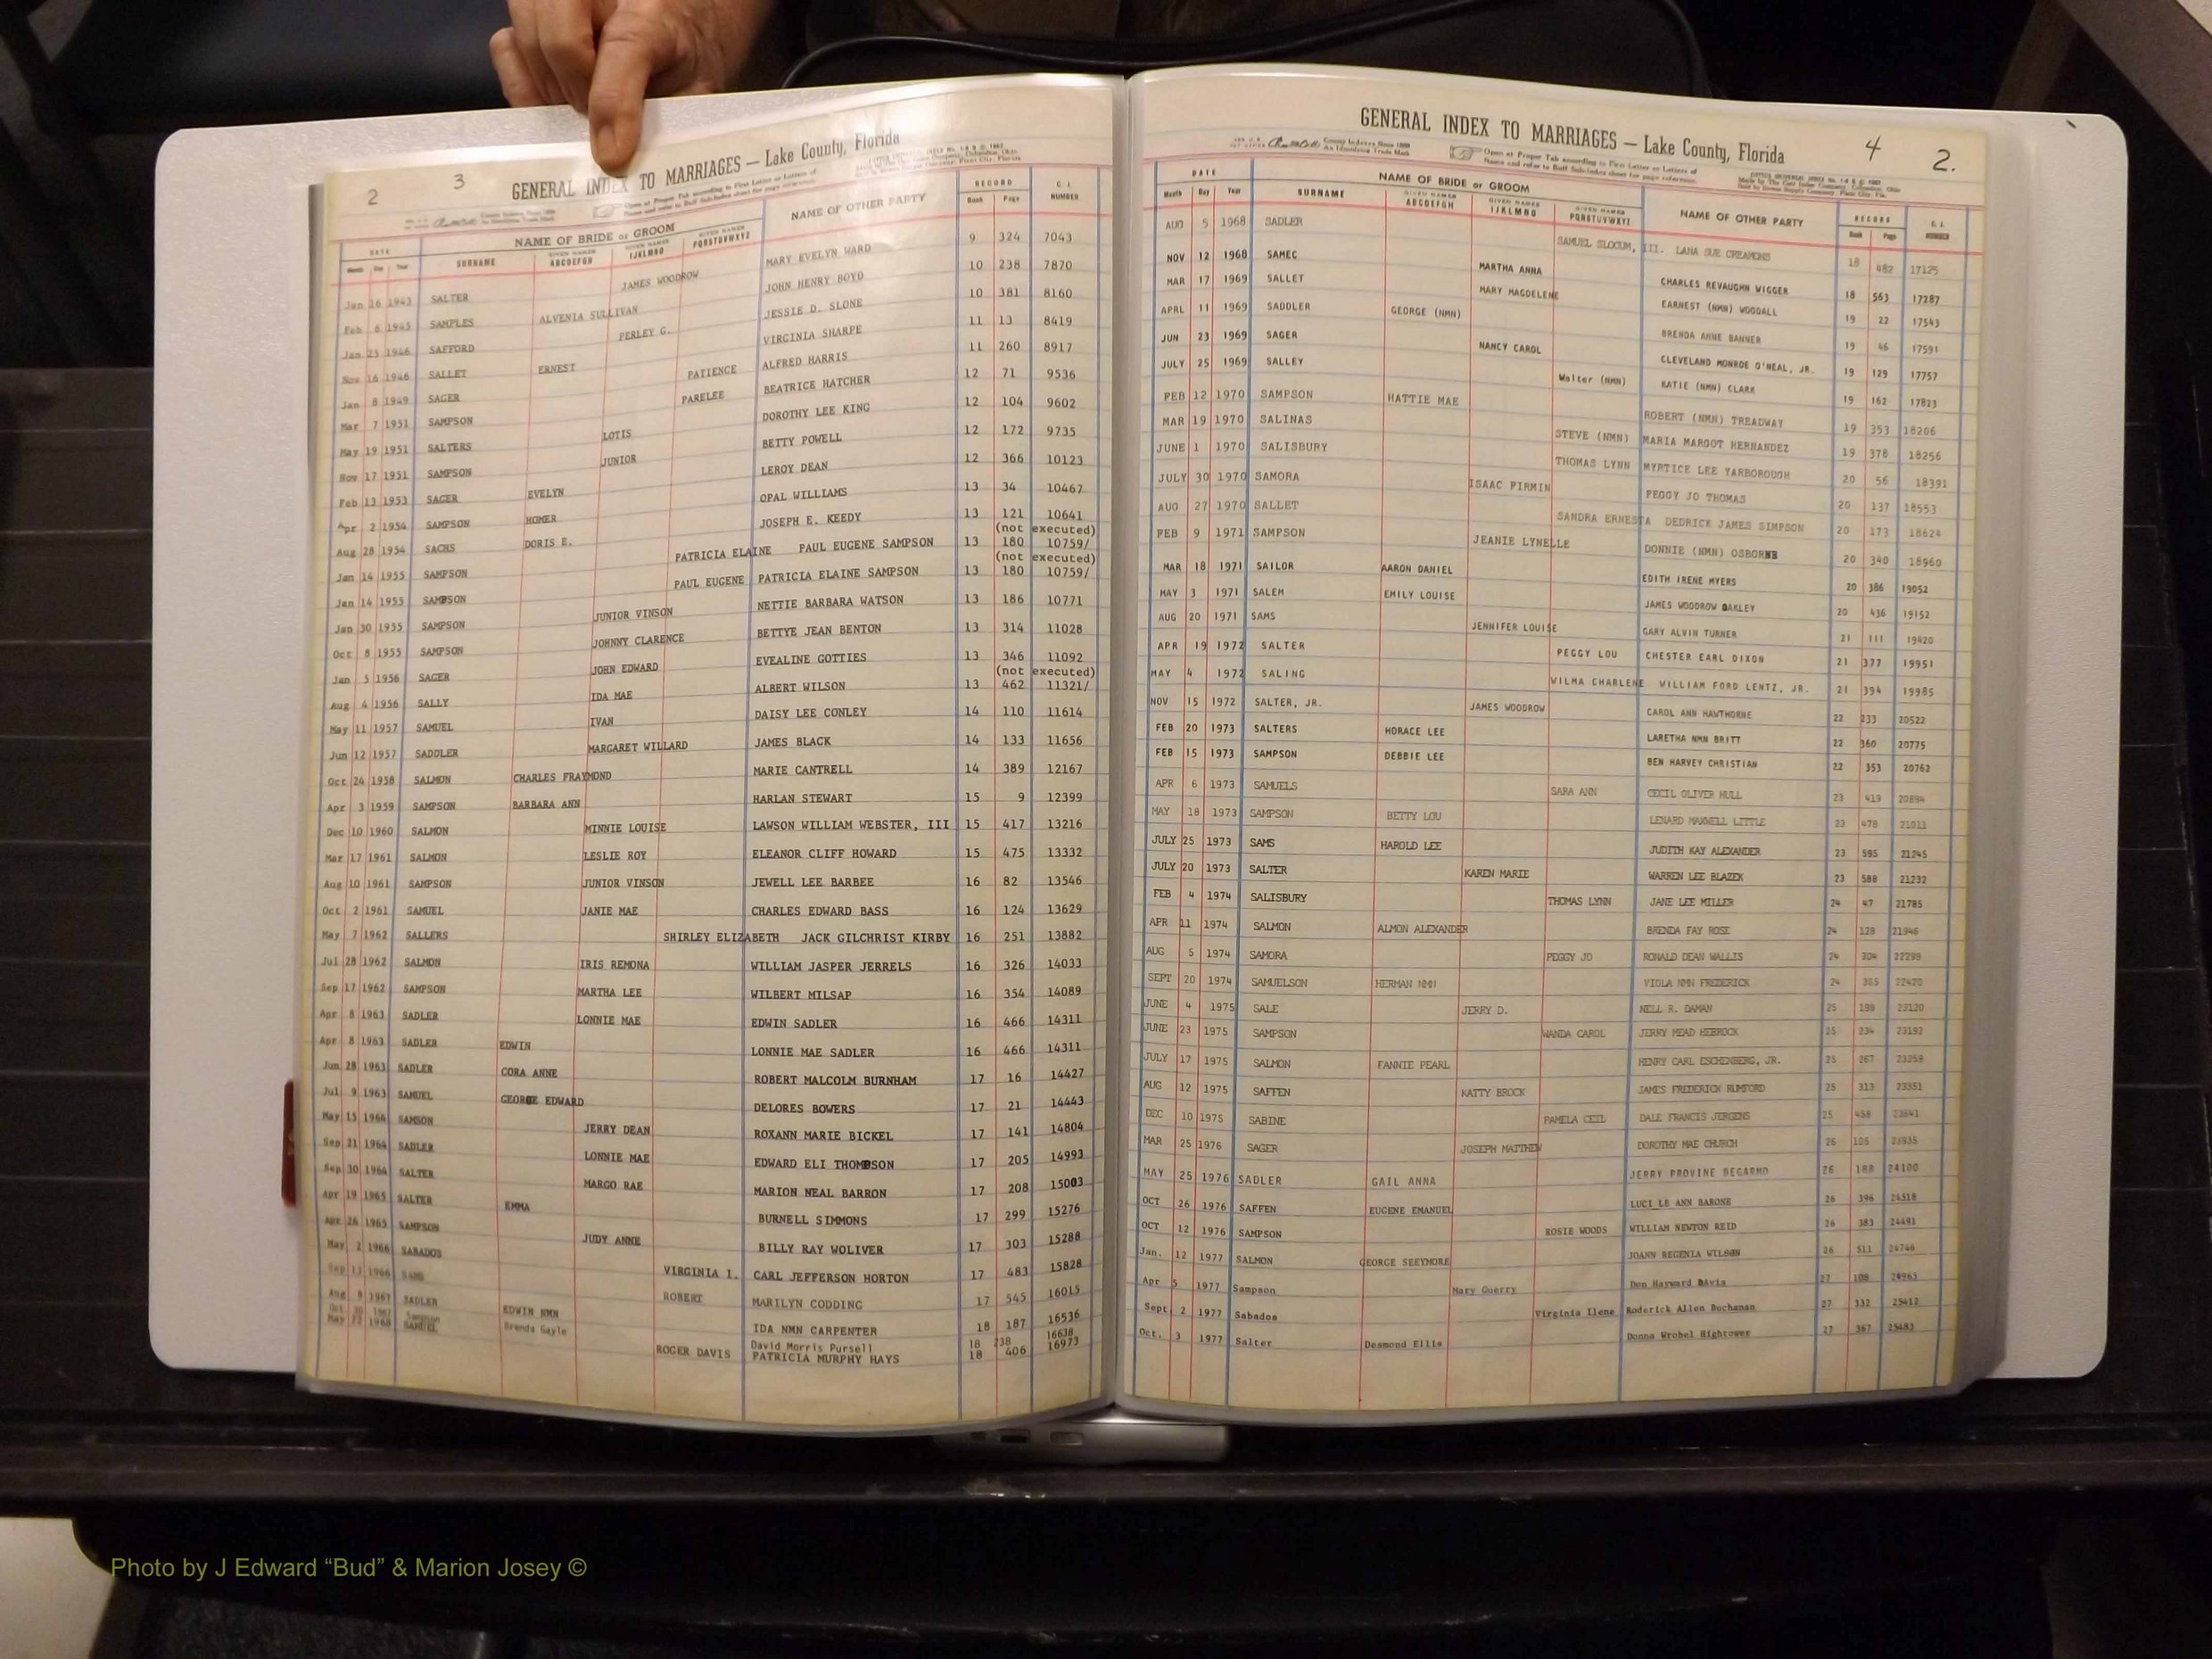 2 3 GENERAL INDEX TO MARRIAGES — Lake County, Florida
Open at Proper Tab according to First Letter or Letters of
Name and refer to Buff Sub-Index sheet for page reference.
DATE NAME OF BRIDE or GROOM NAME OF OTHER PARTY RECORD C. I.
Month Day Year SURNAME GIVEN NAMES ABCDEFGH GIVEN NAMES IJKLMNO GIVEN NAMES PQRSTUVWXYZ Book Page NUMBER
Jan 16 1943 SALTER JAMES WOODROW MARY EVELYN WARD 9 324 7043
Feb 6 1945 SAMPLES ALVENIA SULLIVAN JOHN HENRY BOYD 10 238 7870
Jan 23 1946 SAFFORD PERLEY G. JESSIE D. SLONE 10 381 8160
Nov 16 1946 SALLET ERNEST VIRGINIA SHARPE 11 13 8419
Jan 8 1949 SAGER PATIENCE ALFRED HARRIS 11 260 8917
Mar 7 1951 SAMPSON PARELEE BEATRICE HATCHER 12 71 9536
May 19 1951 SALTERS LOTIS DOROTHY LEE KING 12 104 9602
Nov 17 1951 SAMPSON JUNIOR BETTY POWELL 12 172 9735
Feb 13 1953 SAGER EVELYN LEROY DEAN 12 366 10123
Apr 2 1954 SAMPSON HOMER OPAL WILLIAMS 13 34 10467
Aug 28 1954 SACHS DORIS E. JOSEPH E. KEEDY 13 121 10641
(not executed)
Jan 14 1955 SAMPSON PATRICIA ELAINE PAUL EUGENE SAMPSON 13 180 10759/
(not executed)
Jan 14 1955 SAMPSON PAUL EUGENE PATRICIA ELAINE SAMPSON 13 180 10759/
Jan 30 1955 SAMPSON JUNIOR VINSON NETTIE BARBARA WATSON 13 186 10771
Oct 8 1955 SAMPSON JOHNNY CLARENCE BETTYE JEAN BENTON 13 314 11028
Jan 5 1956 SAGER JOHN EDWARD EVEALINE GOTTIES 13 346 11092
(not executed)
Aug 4 1956 SALLY IDA MAE ALBERT WILSON 13 462 11321/
May 11 1957 SAMUEL IVAN DAISY LEE CONLEY 14 110 11614
Jun 12 1957 SADDLER MARGARET WILLARD JAMES BLACK 14 133 11656
Oct 24 1958 SALMON CHARLES FRAYMOND MARIE CANTRELL 14 389 12167
Apr 3 1959 SAMPSON BARBARA ANN HARLAN STEWART 15 9 12399
Dec 10 1960 SALMON MINNIE LOUISE LAWSON WILLIAM WEBSTER, III 15 417 13216
Mar 17 1961 SALMON LESLIE ROY ELEANOR CLIFF HOWARD 15 475 13332
Aug 10 1961 SAMPSON JUNIOR VINSON JEWELL LEE BARBEE 16 82 13546
Oct 2 1961 SAMUEL JANIE MAE CHARLES EDWARD BASS 16 124 13629
May 7 1962 SALLERS SHIRLEY ELIZABETH JACK GILCHRIST KIRBY 16 251 13882
Jul 28 1962 SALMON IRIS REMONA WILLIAM JASPER JERRELS 16 326 14033
Sep 17 1962 SAMPSON MARTHA LEE WILBERT MILSAP 16 354 14089
Apr 8 1963 SADLER LONNIE MAE EDWIN SADLER 16 466 14311
Apr 8 1963 SADLER EDWIN LONNIE MAE SADLER 16 466 14311
Jun 28 1963 SADLER CORA ANNE ROBERT MALCOLM BURNHAM 17 16 14427
Jul 9 1963 SAMUEL GEORGE EDWARD DELORES BOWERS 17 21 14443
May 15 1964 SAMSON JERRY DEAN ROXANN MARIE BICKEL 17 141 14804
Sep 21 1964 SADLER LONNIE MAE EDWARD ELI THOMPSON 17 205 14993
Sep 30 1964 SALTER MARGO RAE MARION NEAL BARRON 17 208 15003
Apr 19 1965 SALTER EMMA BURNELL SIMMONS 17 299 15276
Apr 26 1965 SAMPSON JUDY ANNE BILLY RAY WOLIVER 17 303 15288
May 2 1966 SABADOS VIRGINIA I. CARL JEFFERSON HORTON 17 483 15828
Sep 13 1966 SAMS ROBERT MARILYN CODDING 17 545 16015
Aug 9 1967 SADLER EDWIN NMN IDA NMN CARPENTER 18 187 16536
Oct 30 1967 Sampson Brenda Gayle David Morris Pursell 18 238 16638
May 22 1968 SAMUEL ROGER DAVIS PATRICIA MURPHY HAYS 18 406 16973
GENERAL INDEX TO MARRIAGES — Lake County, Florida 4 2.
Open at Proper Tab according to First Letter or Letters of
Name and refer to Buff Sub-Index sheet for page reference.
DATE NAME OF BRIDE or GROOM NAME OF OTHER PARTY RECORD C. I.
Month Day Year SURNAME GIVEN NAMES ABCDEFGH GIVEN NAMES IJKLMNO GIVEN NAMES PQRSTUVWXYZ Book Page NUMBER
AUG 5 1968 SADLER SAMUEL SLOCUM, III. LANA SUE CREAMONS 18 482 17125
NOV 12 1968 SAMEC MARTHA ANNA CHARLES REVAUGHN WIGGER 18 563 17287
MAR 17 1969 SALLET MARY MAGDELENE EARNEST (NMN) WOODALL 19 22 17543
APRL 11 1969 SADDLER GEORGE (NMN) BRENDA ANNE BANNER 19 46 17591
JUN 23 1969 SAGER NANCY CAROL CLEVELAND MONROE O'NEAL, JR. 19 129 17757
JULY 25 1969 SALLEY Walter (NMN) KATIE (NMN) CLARK 19 162 17823
FEB 12 1970 SAMPSON HATTIE MAE ROBERT (NMN) TREADWAY 19 353 18206
MAR 19 1970 SALINAS STEVE (NMN) MARIA MARGOT HERNANDEZ 19 378 18256
JUNE 1 1970 SALISBURY THOMAS LYNN MYRTICE LEE YARBOROUGH 20 56 18391
JULY 30 1970 SAMORA ISAAC PIRMIN PEGGY JO THOMAS 20 137 18553
AUG 27 1970 SALLET SANDRA ERNESTA DEDRICK JAMES SIMPSON 20 173 18624
FEB 9 1971 SAMPSON JEANIE LYNELLE DONNIE (NMN) OSBORNE 20 340 18960
MAR 18 1971 SAILOR AARON DANIEL EDITH IRENE MYERS 20 386 19052
MAY 3 1971 SALEM EMILY LOUISE JAMES WOODROW OAKLEY 20 436 19152
AUG 20 1971 SAMS JENNIFER LOUISE GARY ALVIN TURNER 21 111 19420
APR 19 1972 SALTER PEGGY LOU CHESTER EARL DIXON 21 377 19951
MAY 4 1972 SALING WILMA CHARLENE WILLIAM FORD LENTZ, JR. 21 394 19985
NOV 15 1972 SALTER, JR. JAMES WOODROW CAROL ANN HAWTHORNE 22 233 20522
FEB 20 1973 SALTERS HORACE LEE LARETHA NMN BRITT 22 360 20775
FEB 15 1973 SAMPSON DEBBIE LEE BEN HARVEY CHRISTIAN 22 353 20762
APR 6 1973 SAMUELS SARA ANN CECIL OLIVER HULL 23 419 20894
MAY 18 1973 SAMPSON BETTY LOU LENARD MAXWELL LITTLE 23 478 21011
JULY 25 1973 SAMS HAROLD LEE JUDITH KAY ALEXANDER 23 595 21245
JULY 20 1973 SALTER KAREN MARIE WARREN LEE BLAZEK 23 588 21232
FEB 4 1974 SALISBURY THOMAS LYNN JANE LEE MILLER 24 47 21785
APR 11 1974 SALMON ALMON ALEXANDER BRENDA FAY ROSE 24 128 21946
AUG 5 1974 SAMORA PEGGY JO RONALD DEAN WALLIS 24 304 22299
SEPT 20 1974 SAMUELSON HERMAN NMN VIOLA NMN FREDERICK 24 365 22420
JUNE 4 1975 SALE JERRY D. NELL R. DAMAN 25 198 23120
JUNE 23 1975 SAMPSON WANDA CAROL JERRY MEAD HEBROCK 25 234 23192
JULY 17 1975 SALMON FANNIE PEARL HENRY CARL ESCHENBERG, JR. 25 267 23259
AUG 12 1975 SAFFEN KATTY BROCK JAMES FREDERICK RUMFORD 25 313 23351
DEC 10 1975 SABINE PAMELA CEIL DALE FRANCIS JERGENS 25 458 23641
MAR 25 1976 SAGER JOSEPH MATTHEW DOROTHY MAE CHURCH 26 105 23935
MAY 25 1976 SADLER GAIL ANNA JERRY PROVINE DEGARMO 26 188 24100
OCT 26 1976 SAFFEN EUGENE EMANUEL LUCI LE ANN BARONE 26 396 24518
OCT 12 1976 SAMPSON ROSIE WOODS WILLIAM NEWTON REID 26 383 24491
Jan. 12 1977 SALMON GEORGE SEEYMORE JOANN REGENIA WILSON 26 511 24746
Apr 5 1977 Sampson Mary Querry Don Hayward DAvis 27 108 24965
Sept 2 1977 Sabados Virginia Ilene Roderick Allen Buchanan 27 332 25412
Oct. 3 1977 Salter Desmond Ellis Donna Wrobel Hightower 27 367 25483
Photo by J Edward “Bud” & Marion Josey ©